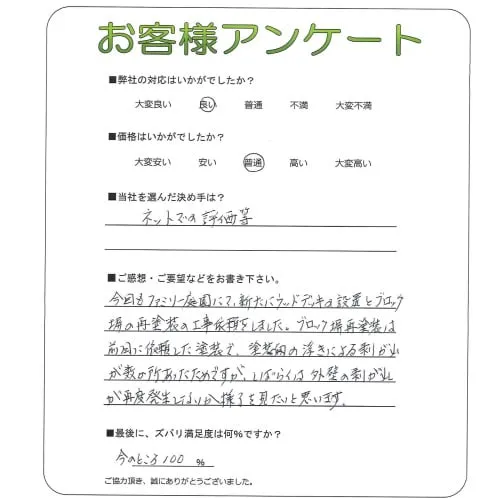 お客様アンケート
■弊社の対応はいかがでしたか?
大変良い 良い 普通 不満 大変不満
■価格はいかがでしたか?
大変安い 安い 普通 高い 大変高い
■当社を選んだ決め手は?
ネットでの評価等
■ご感想・ご要望などをお書き下さい。
今回もファミリー庭園にて、新たにウッドデッキの設置とブロック
塀の再塗装の工事依頼をしました。ブロック塀再塗装は
前回に依頼した塗装で、塗装面の浮きによる剥がれ
が数ヶ所あったためですが、しばらくは外壁の剥がれ
が再度発生しないか様子を見たいと思います。
■最後に、ズバリ満足度は何%ですか?
今のところ100 %
ご協力頂き、誠にありがとうございました。